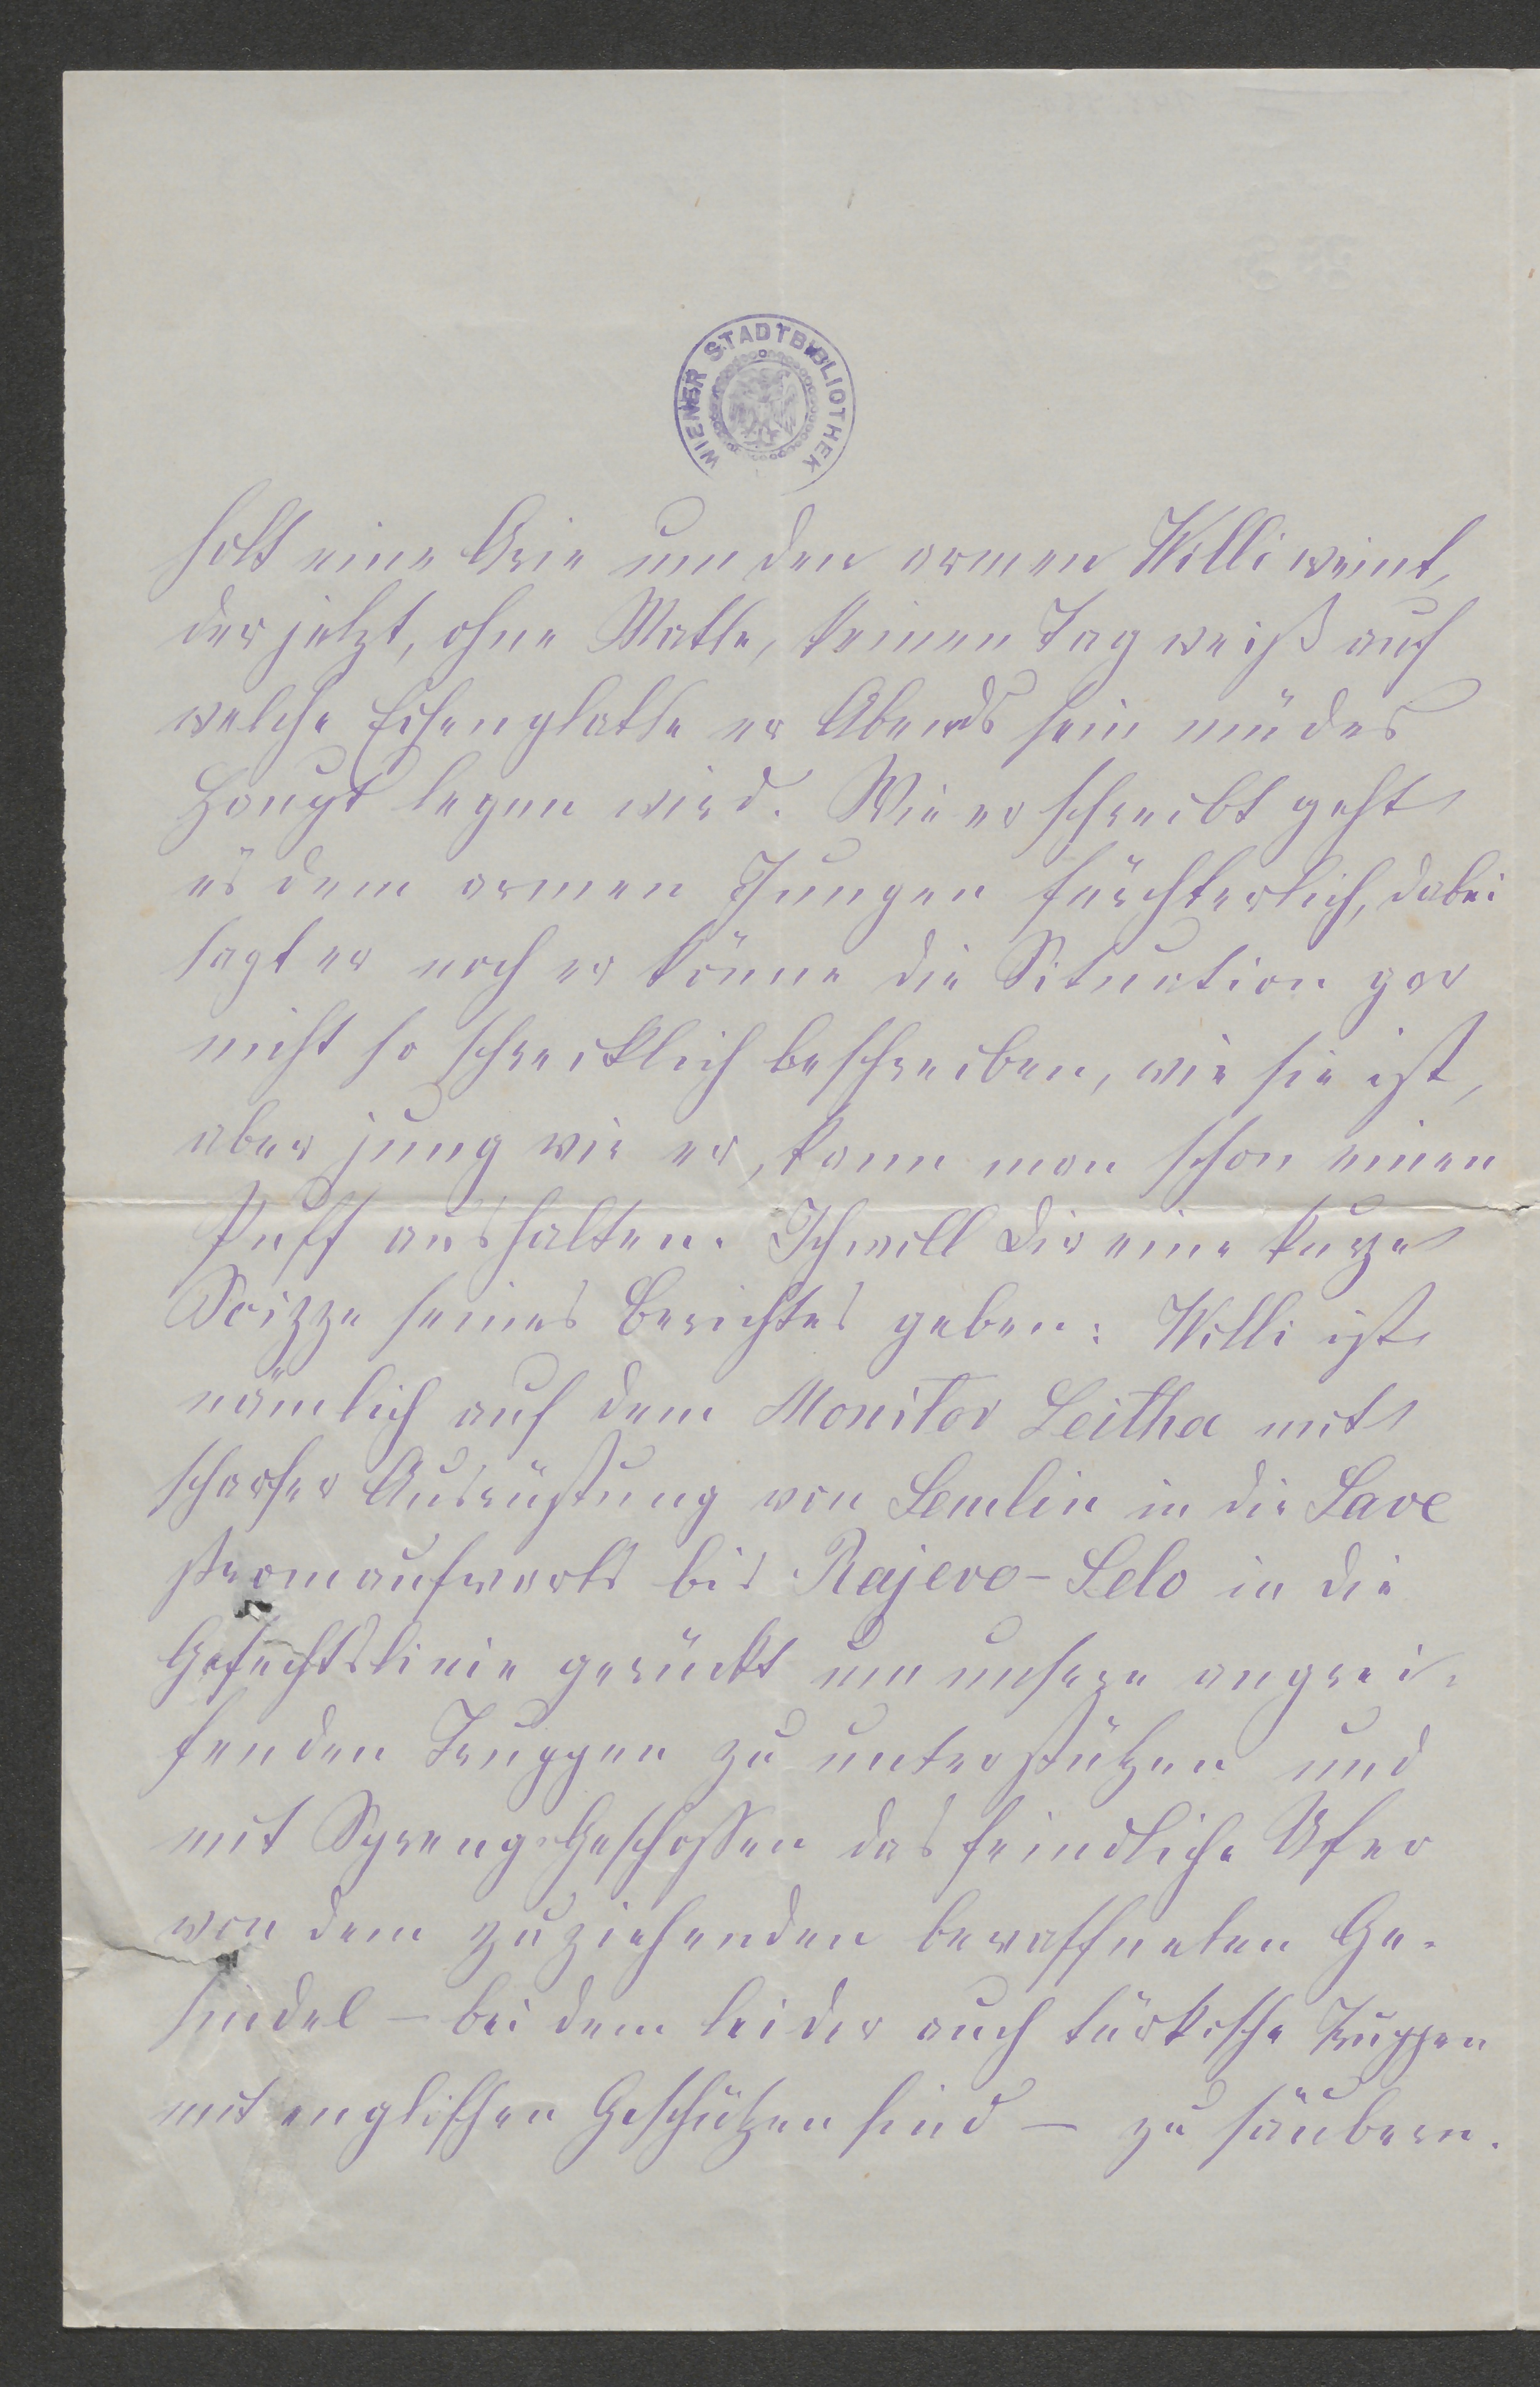 WIENER STADTBIBLIOTHEK
holt eine Arie um den armen Willi weint,
der jetzt, ohne Matte, keinen Tag weiß auf
welche Eisenplatte er Abends sein müdes
Haupt legen wird. Wie er schreibt geht
es dem armen Jungen fürchterlich, dabei
sagt er noch er könne die Situation gar
nicht so schrecklich beschreiben, wie sie ist,
aber jung wie er, kann man schon einen
Puff aushalten. Ich will Dir eine kurze
Scizze seines Berichtes geben: Willi ist
nämlich auf dem Monitor Leitha mit
scharfer Ausrüstung von Semlin in die Save
stromaufwärts bis Rajevo-Selo in die
Gefechtslinie gerückt um unsere angrei-
fenden Truppen zu unterstützen und
mit Spreng-Geschossen das feindliche Ufer
von dem zuziehenden bewaffneten Ge-
sindel – bei dem leider auch türkische Truppen
mit englischen Geschützen sind – zu säubern.